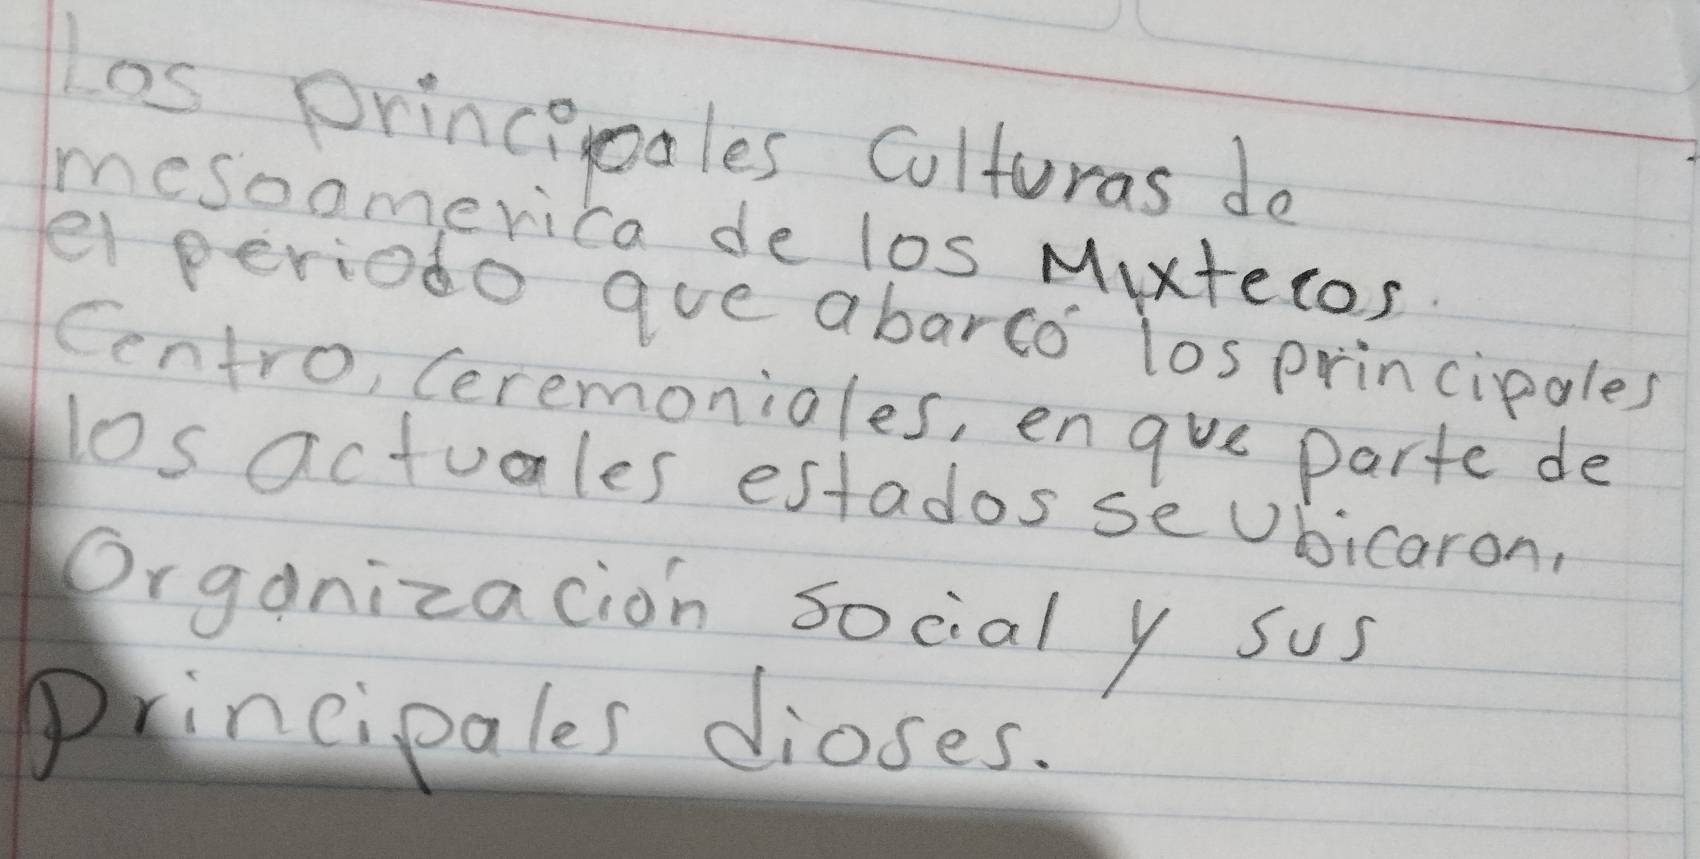 Los principales Culturas de
mesoamerica de los Mixtecos.
el periodo que abarcó los principales
Centro, Ceremoniales, en que parte de
los actuales estados se Ubicaron,
Organización Social y sus
Principales dioses.